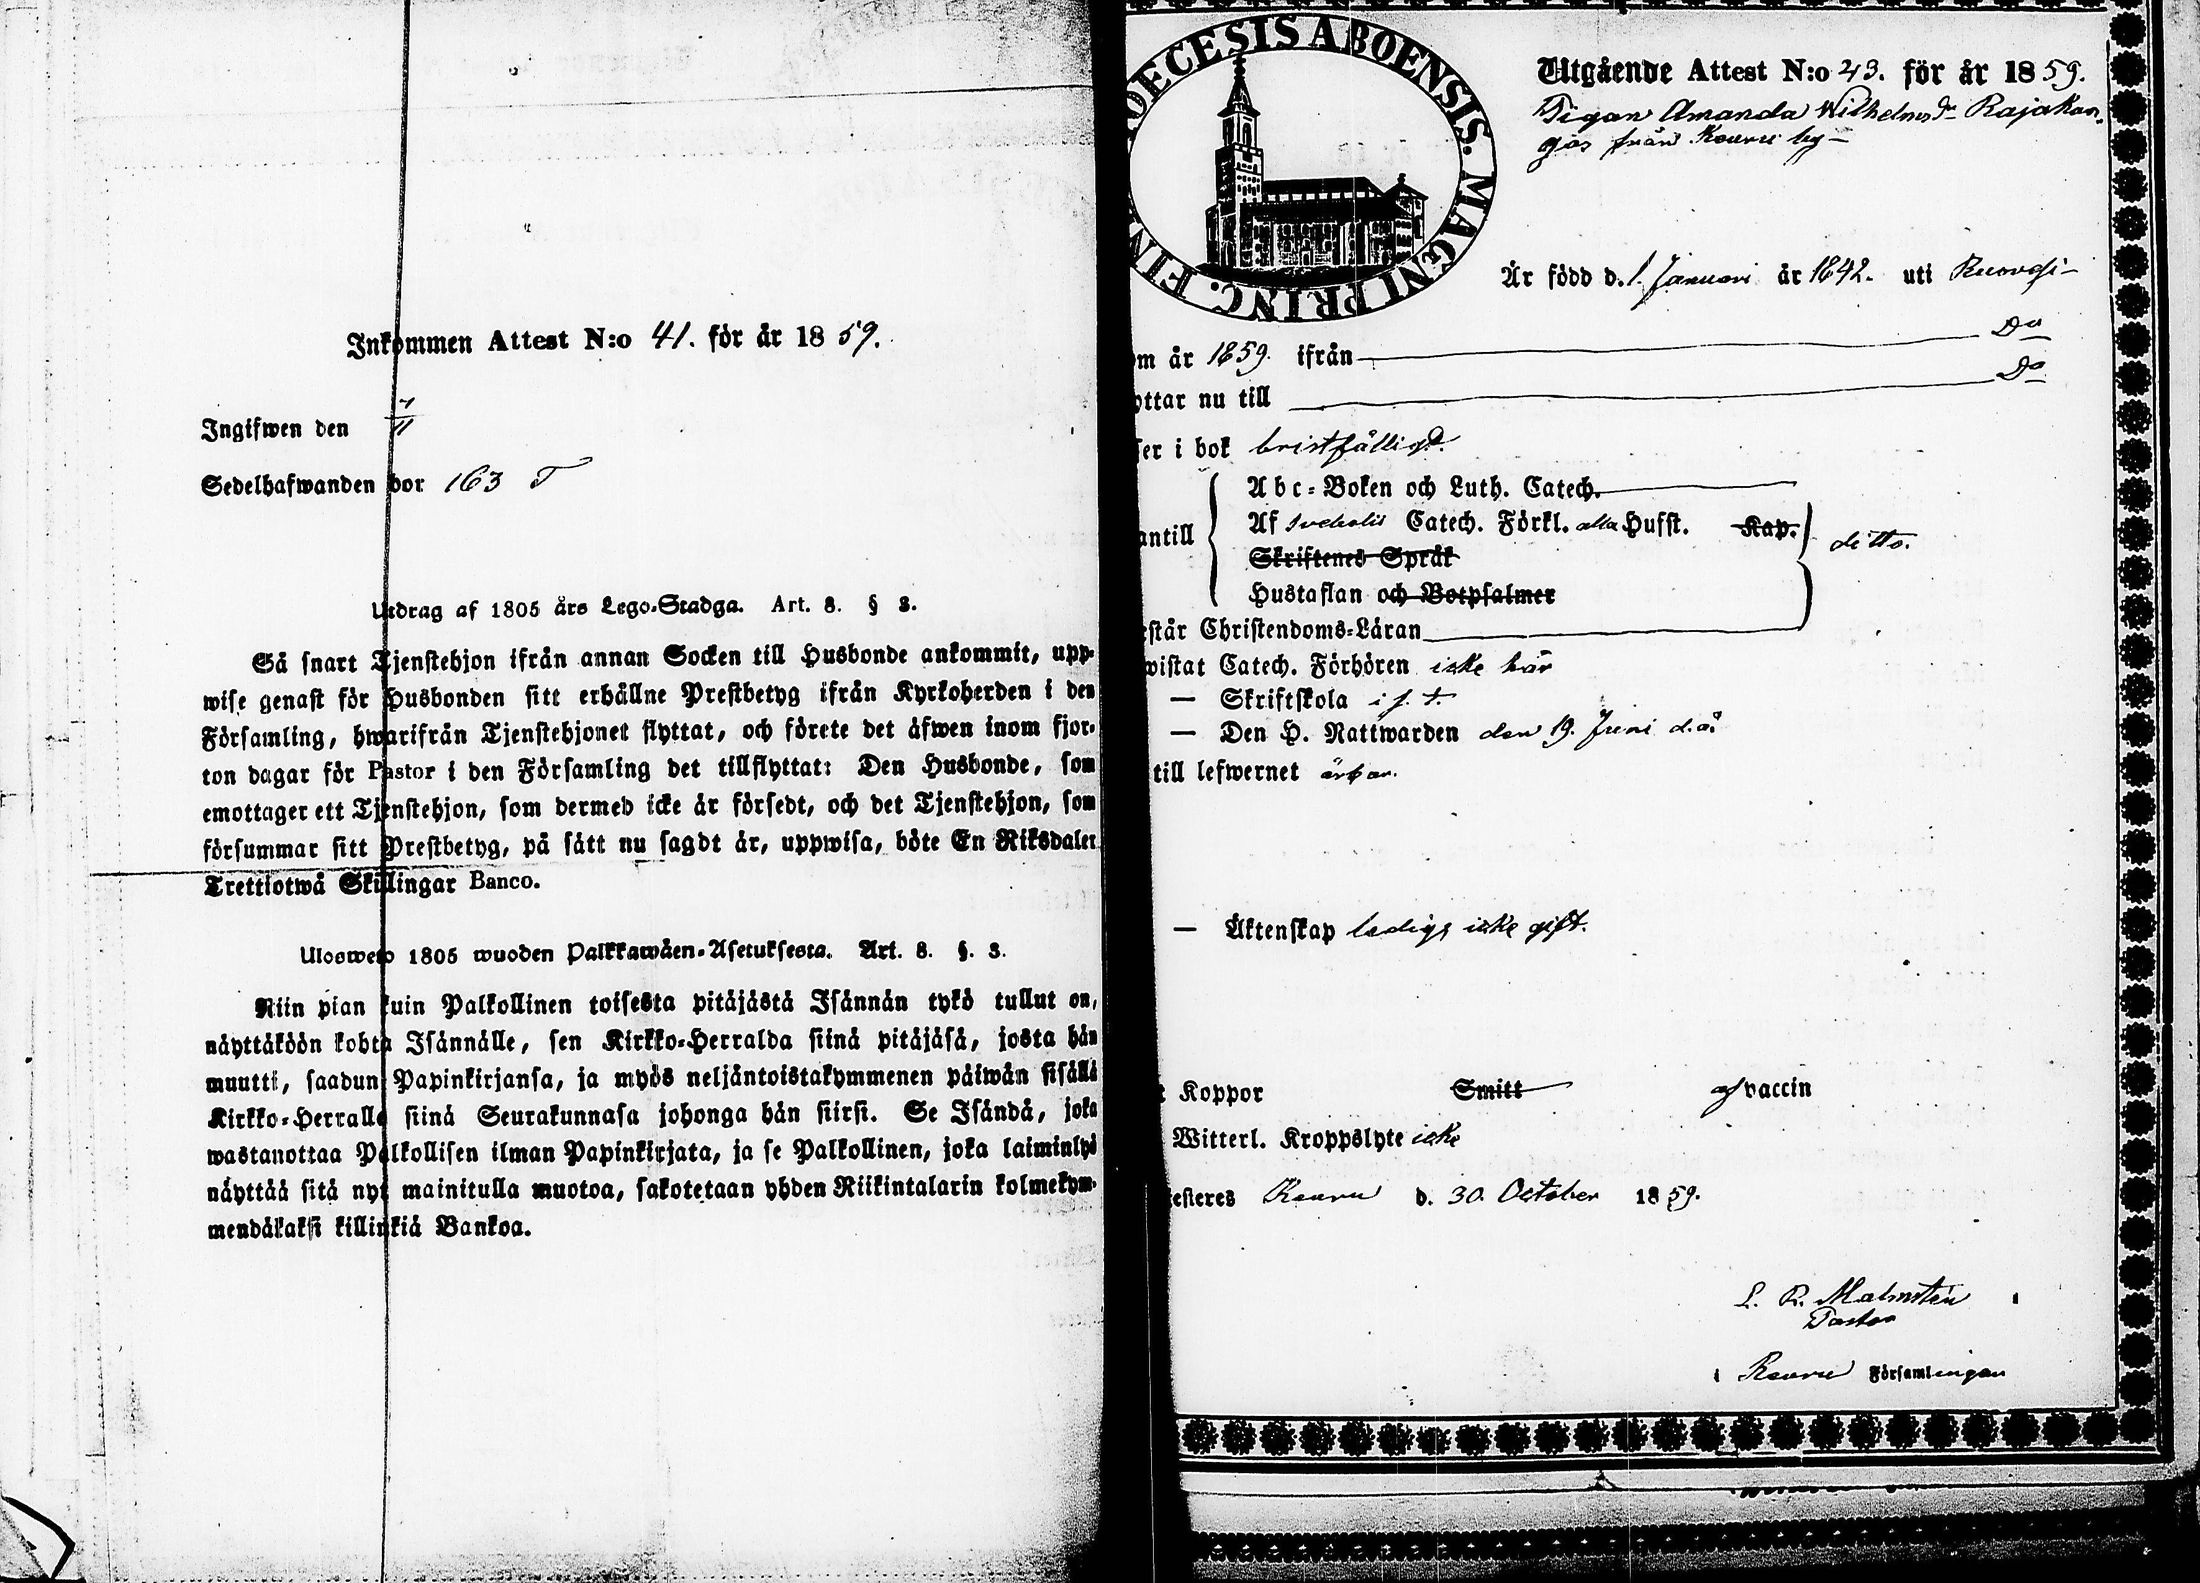 Inkommen Attest N:o 41. för år 1859.
Ingifwen den 7/11
Sedelhafwanden bor 163 T
Utdrag af 1805 års Lego-Stadga. Art. 8. § 3.
Så snart Tjenstehjon ifrån annan Socken till Husbonde ankommit, upp-
wise genast för Husbonden sitt erhållne Prestbetyg ifrån Kyrkoherden i den
Församling, hwarifrån Tjenstehjonet flyttat, och förete det äfwen inom fjor-
ton dagar för Pastor i den Församling det tillflyttat: Den Husbonde, som
emottager ett Tjenstehjon, som dermed icke är försedt, och det Tjenstehjon, som
försummar sitt Prestbetyg, på sätt nu sagdt är, uppwisa, böte En Riksdaler
Trettiotwå Skillingar Banco.
Ulosweto 1805 wuoden Palkkawäen-Asetuksesta. Art. 8. §. 3.
Niin pian kuin Palkollinen toisesta pitäjästä Isännän tykö tullut on,
näyttäköön kohta Isännälle, sen Kirkko-Herralda siinä pitäjäsä, josta hän
muutti, saadun Papinkirjansa, ja myös neljäntoistakymmenen päiwän sisällä
Kirkko-Herralle siinä Seurakunnasa johonga hän siirsi. Se Isändä, joka
wastanottaa Palkollisen ilman Papinkirjata, ja se Palkollinen, joka laiminlyö
näyttää sitä nyt mainitulla muotoa, sakotetaan yhden Riikintalarin kolmekym-
mendäkaksi killinkiä Bankoa.
DECESIS ABOENSIS. MAGNI PRINC. FIN
Utgående Attest N:o 43. för år 1859.
Pigan Amanda Wilhelmsdr Rajakan-
gas från Keuru by
Är född d. 1. Januari år 1842. uti Ruovesi
om år 1859. ifrån Do
ttar nu till Do
ser i bok bristfälligt.
Abc-Boken och Luth. Catech.
Af svebelii Catech. Förkl. alla Hufst. Kap.
antill ditto.
Skriftenes Språk
Hustaflan och Botpsalmer
står Christendoms-Läran
wistat Catech. Förhören icke här
— Skriftskola i f. t.
— Den H. Nattwarden den 19. Juni d.å.
till lefwernet ärbar.
— Äktenskap ledig, icke gift.
Koppor Smitt af vaccin
Witterl. Kroppslyte icke
esteres Keuru d. 30. October 1859.
L. R. Malmstén
Pastor
i Keuru Församlingan